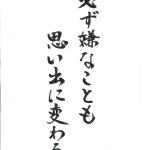 必ず嫌なことも
思い出に変わる